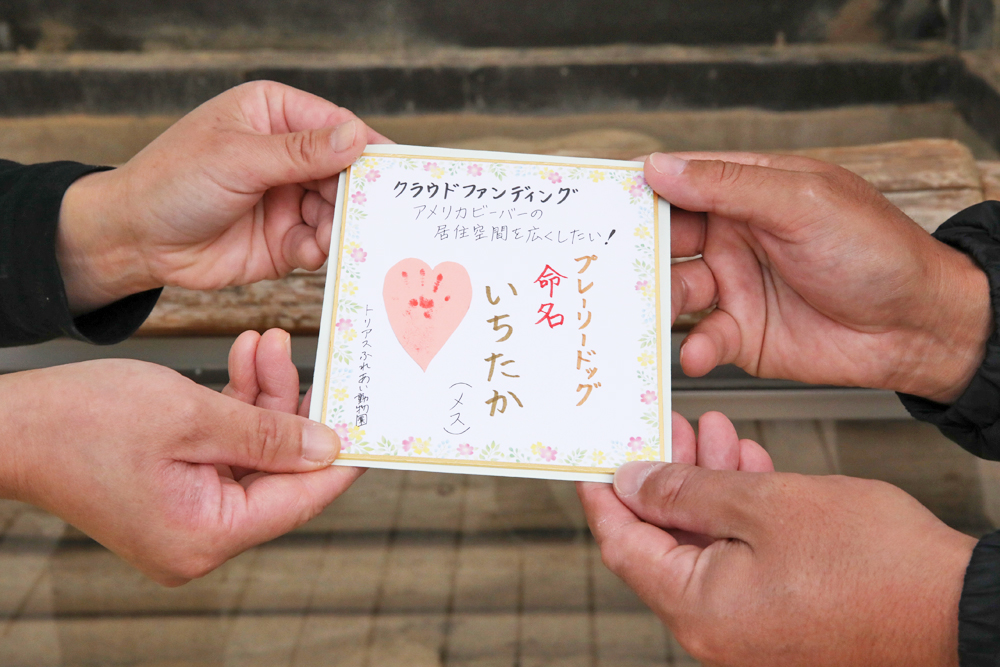 クラウドファンディング
アメリカビーバーの
居住空間を広くしたい!
プレーリードッグ
命名
いちたか
(メス)
トリアスふれあい動物園